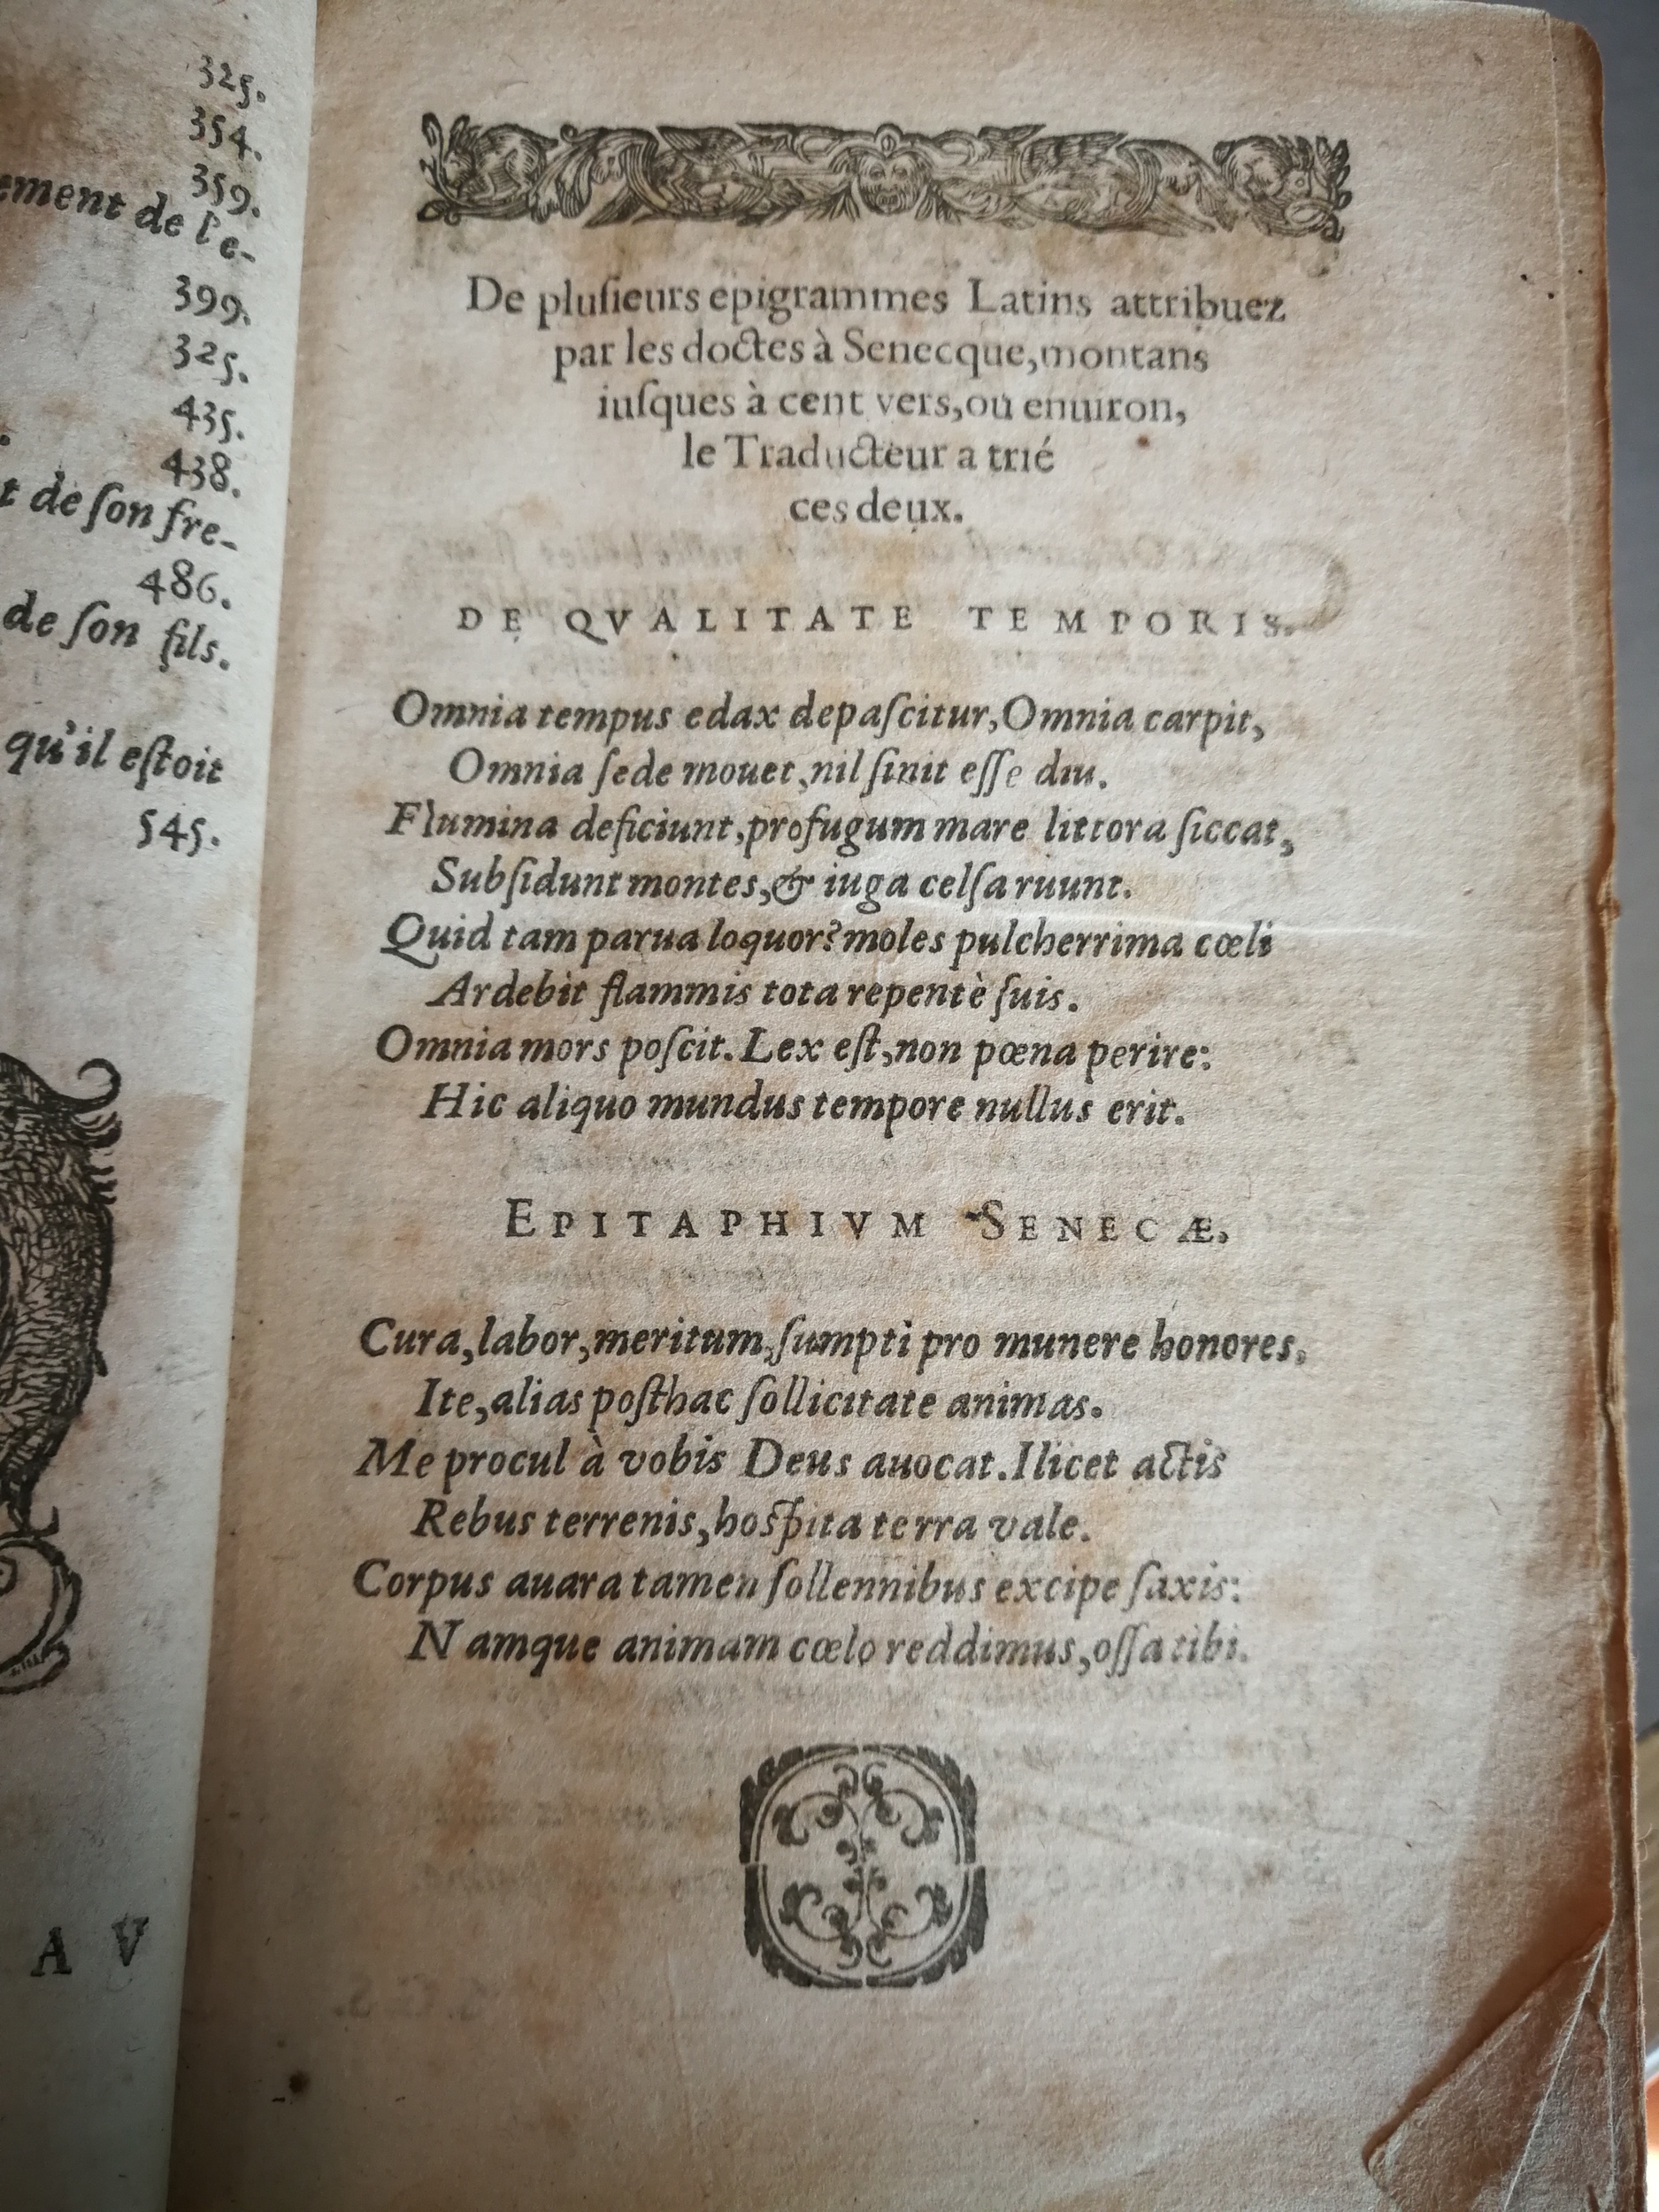 325.
354.
359.
ement de l'e-
399.
325.
435.
438.
t de ſon fre-
486.
de ſon fils.
qu'il eſtoit
545.
A V
De pluſieurs epigrammes Latins attribuez
par les doctes à Senecque, montans
iuſques à cent vers, ou enuiron,
le Traducteur a trié
ces deux.
DE QVALITATE TEMPORIS.
Omnia tempus edax depaſcitur, Omnia carpit,
Omnia ſede mouet, nil ſinit eſſe diu.
Flumina deficiunt, profugum mare littora ſiccat,
Subſidunt montes, & iuga celſa ruunt.
Quid tam parua loquor? moles pulcherrima cœli
Ardebit flammis tota repentè ſuis.
Omnia mors poſcit. Lex eſt, non pœna perire:
Hic aliquo mundus tempore nullus erit.
EPITAPHIVM SENECÆ.
Cura, labor, meritum, ſumpti pro munere honores,
Ite, alias poſthac ſollicitate animas.
Me procul à vobis Deus auocat. Ilicet actis
Rebus terrenis, hoſpita terra vale.
Corpus auara tamen ſollennibus excipe ſaxis:
Namque animam cœlo reddimus, oſſa tibi.